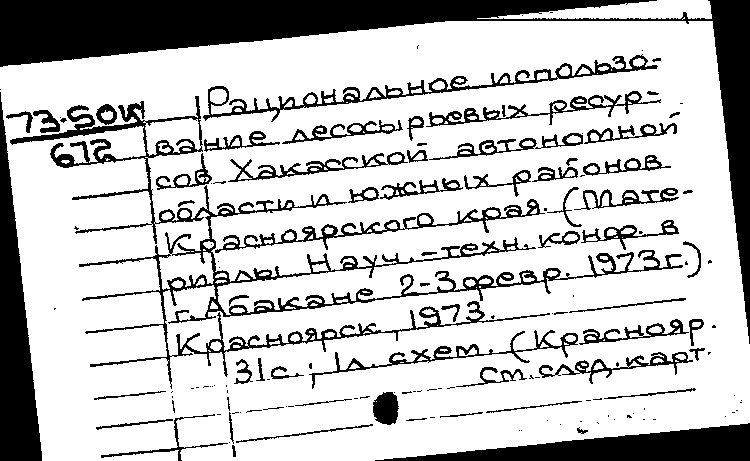 73-50K
672
Рациональное использо-
вание лесосырьевых ресур-
сов Хакасской автономной
области и южных районов
Красноярского края. (Мате-
риалы Науч.-техн. конф. в
г. Абакане 2-3 февр. 1973г.).
Красноярск, 1973.
31с.; 1л. схем. (Краснояр.
См. след. карт.